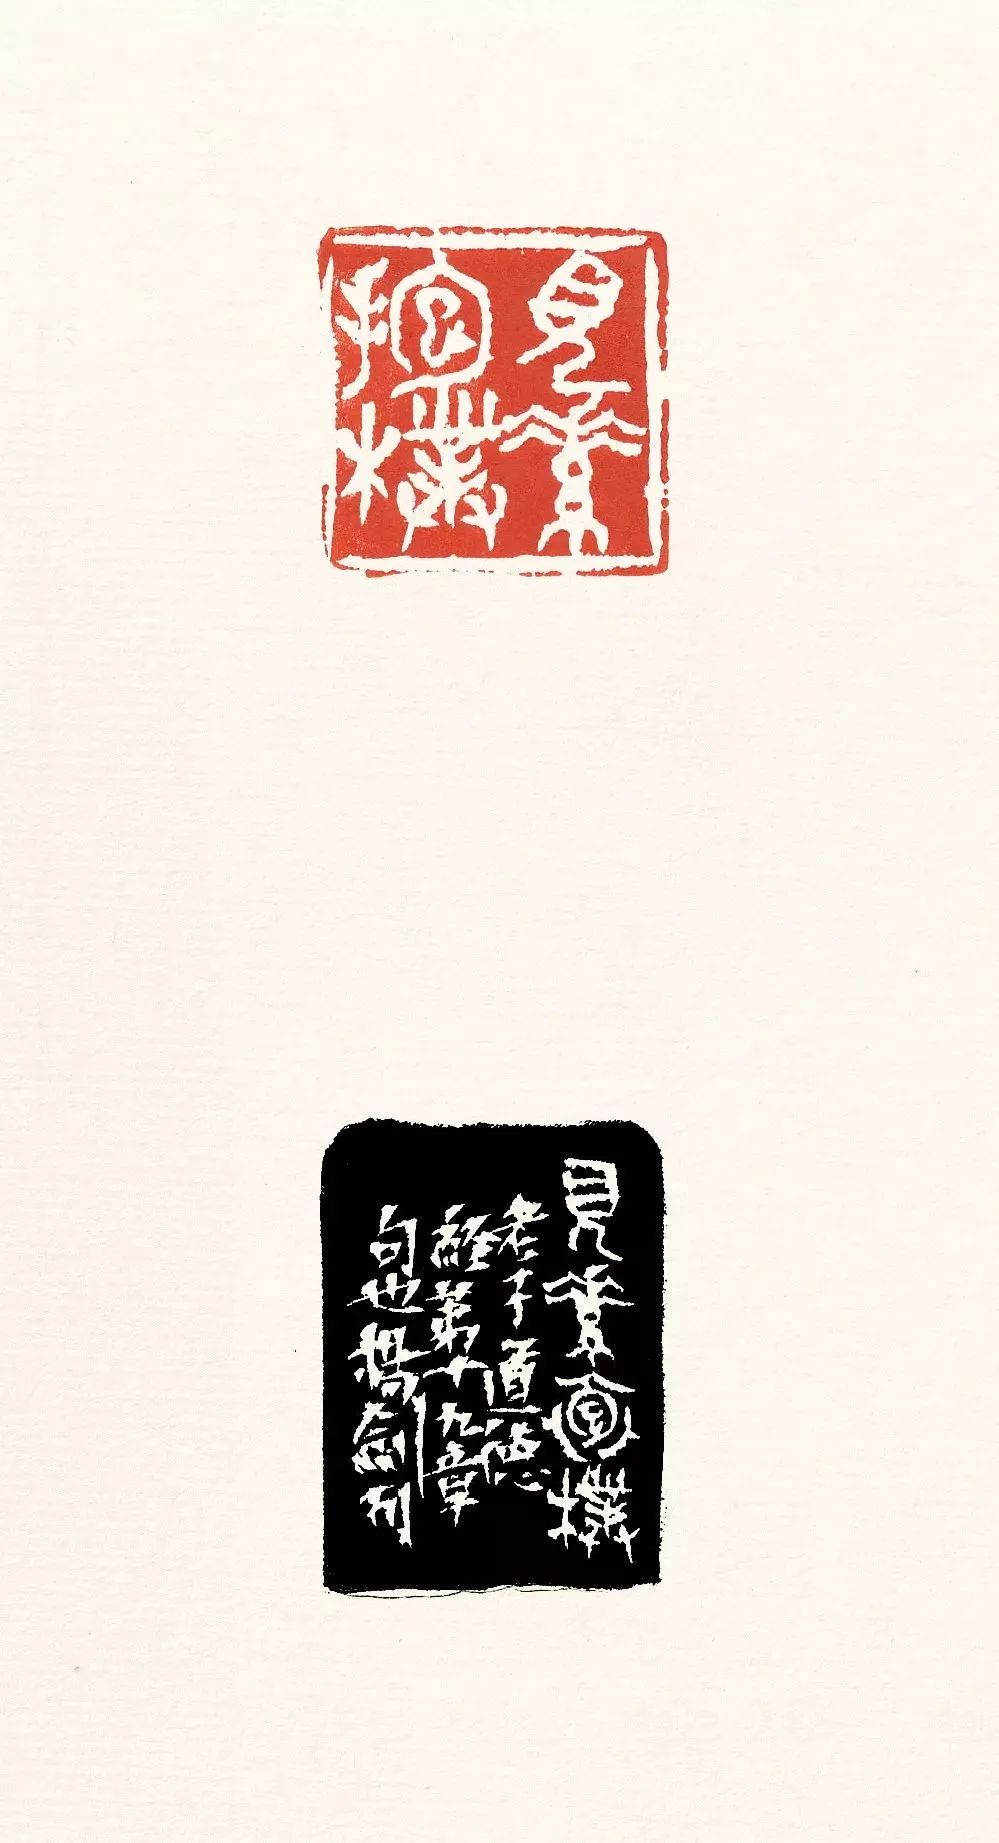 見素
抱樸
見素抱樸
老子道德
經第十九章
句也劍刊